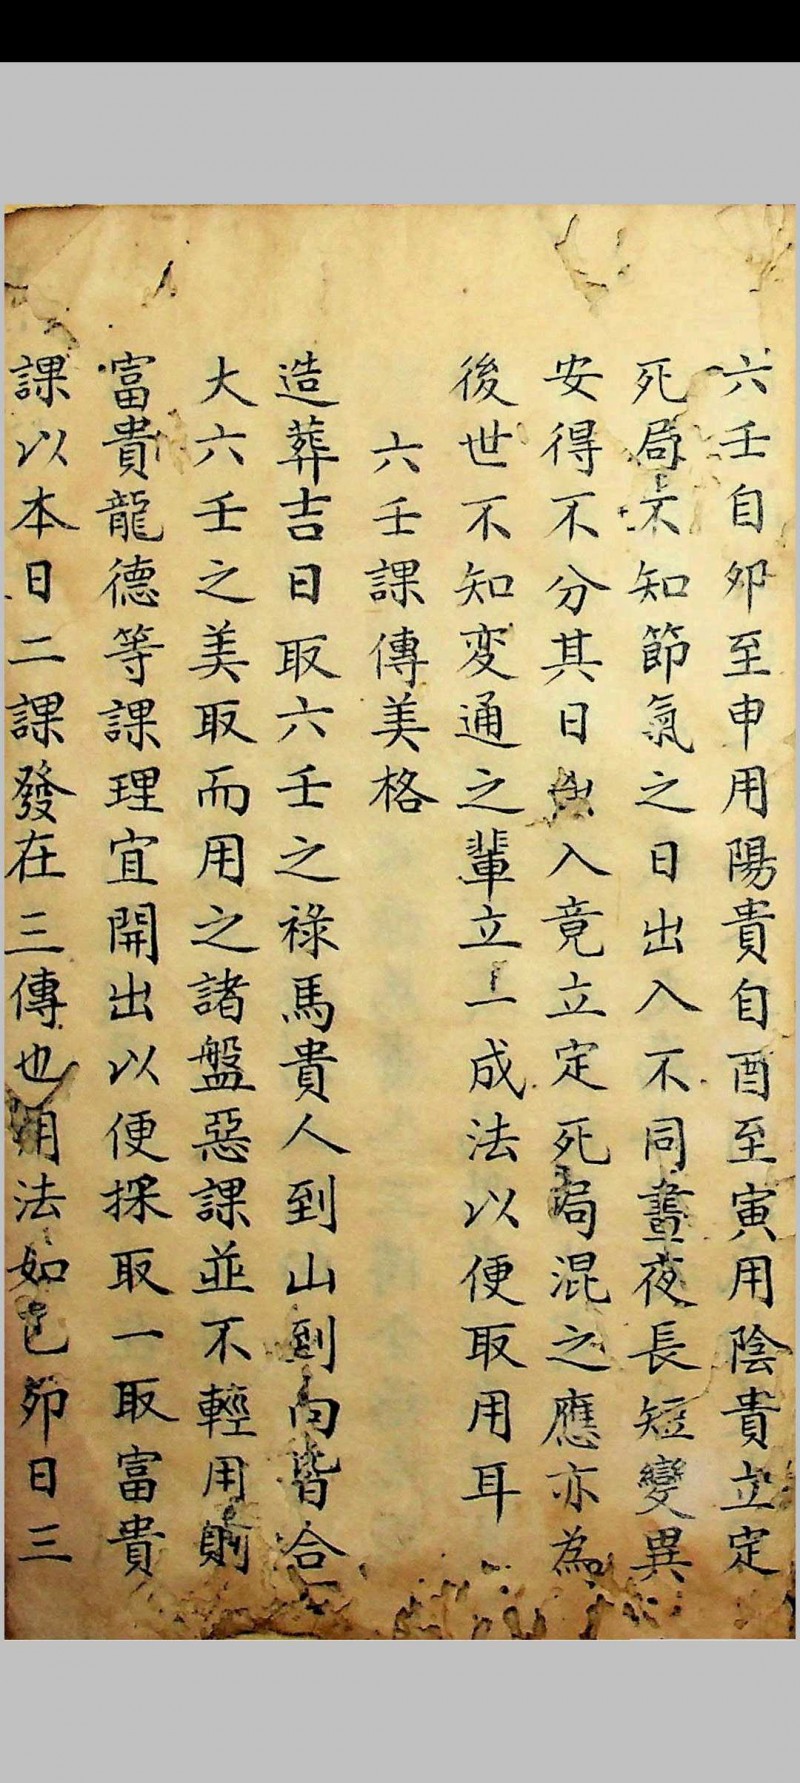 六壬自夘至申用陽貴自酉至寅用陰貴立定
死局不知節氣之日出入不同晝夜長短變異
安得不分其日出入竟立定死局混之應亦為
後世不知変通之輩立一成法以便取用耳
六壬課傳美格
造葬吉日取六壬之祿馬貴人到山到向皆合
大六壬之美取而用之諸盤惡課並不輕用則
富貴龍德等課理宜開出以便採取一取富貴
課以本日二課發在三傳也用法如己夘日三